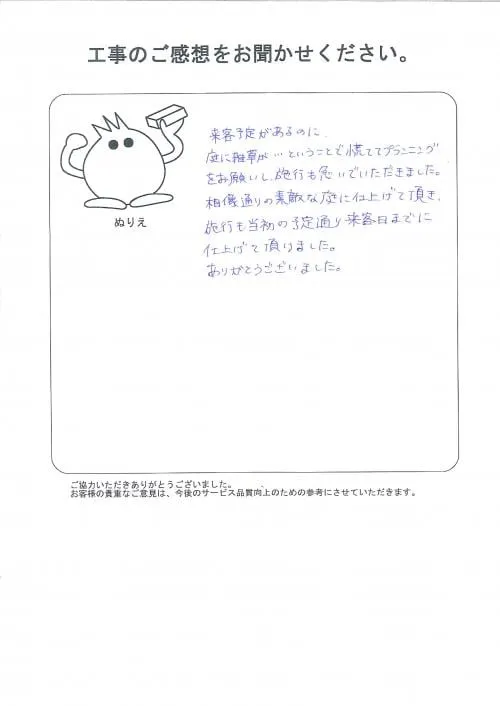 工事のご感想をお聞かせください。
来客予定があるのに、
庭に雑草が…ということで慌ててプランニング
をお願いし、施行も急いでいただきました。
想像通りの素敵な庭に仕上げて頂き、
施行も当初の予定通り来客日までに
仕上げて頂けました。
ありがとうございました。
ぬりえ
ご協力いただきありがとうございました。
お客様の貴重なご意見は、今後のサービス品質向上のための参考にさせていただきます。